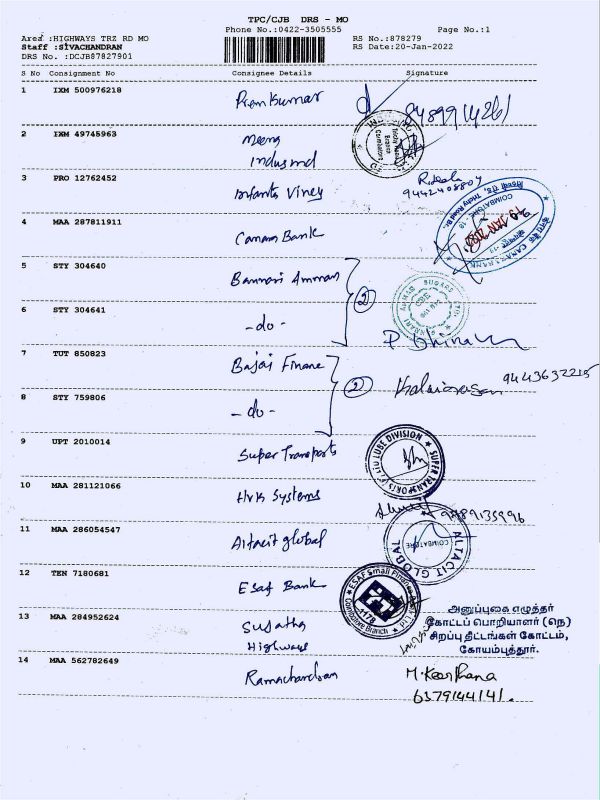 TPC/CJB DRS - MO
Phone No.:0422-3505555
Page No.:1
Area :HIGHWAYS TRZ RD MO
Staff :SIVACHANDRAN
DRS No. :DCJB87827901
RS No.:878279
RS Date:20-Jan-2022
S No Consignment No Consignee Details Signature
1 IXM 500976218 Premkumar
2 IXM 49745963 Meena
Indusind
3 PRO 12762452 Infants Viney
9442408804
4 MAA 287811911 Canara Bank
5 STY 304640 Bannari Amman
6 STY 304641 -do- 2
7 TUT 850823 Bajaj Finane
8 STY 759806 -do- 2 Kalaiarasan 9443632215
9 UPT 2010014 Super Transports
SUPER TRANSPORTS LUBE DIVISION
10 MAA 281121066 HVK Systems
9489135996
11 MAA 286054547 Altacit global
ALTACIT GLOBAL
COIMBATORE
12 TEN 7180681 Esaf Bank
ESAF Small Finance
Coimbatore Branch
1178
13 MAA 284952624 Sujatha
Highways
அனுப்புகை எழுத்தர்
கோட்டப் பொறியாளர் (நெ)
சிறப்பு திட்டங்கள் கோட்டம்,
கோயம்புத்தூர்.
14 MAA 562782649 Ramachandran
M. Keerthana
6379144141.